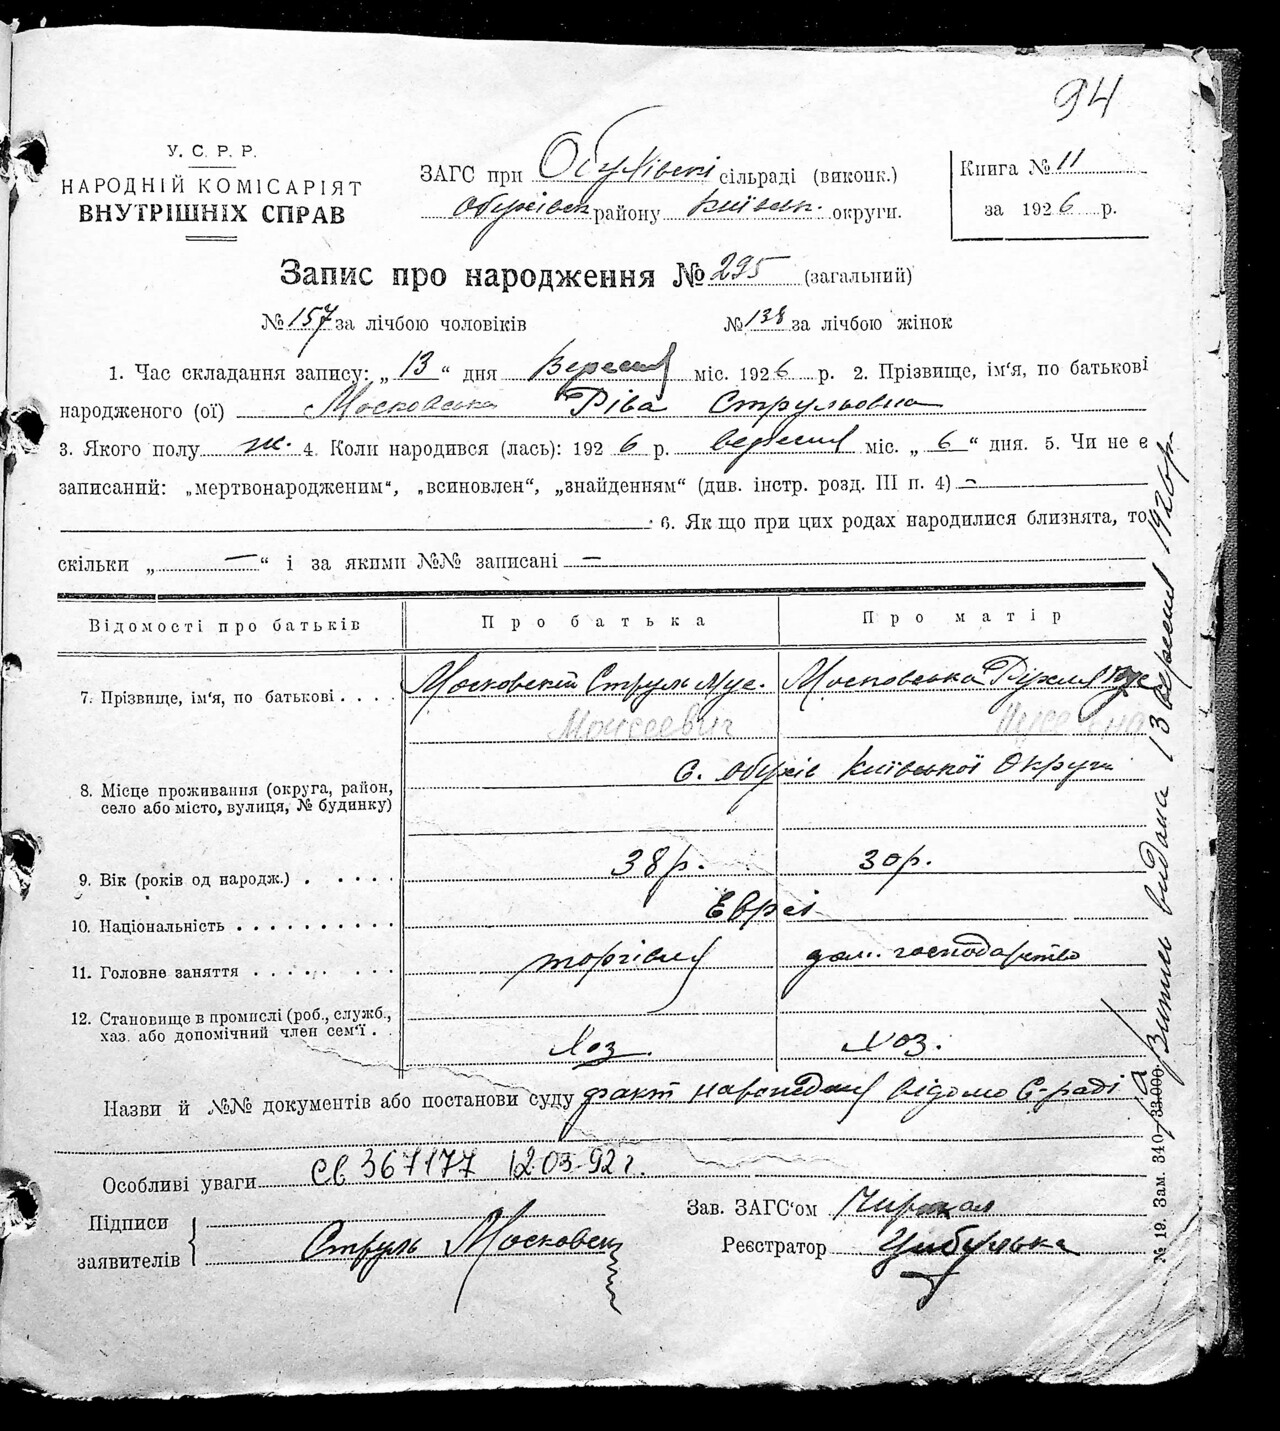 94
У. С. Р. Р.
НАРОДНІЙ КОМІСАРІЯТ
ВНУТРІШНІХ СПРАВ
ЗАГС при Обухівскі сільраді (виконк.)
обухівск району Київськ. округи.
Книга № 11
за 1926 р.
Запис про народження № 295 (загальний)
№ 157 за лічбою чоловіків № 138 за лічбою жінок
1. Час складання запису: „ 13 “ дня Вересня міс. 1926 р. 2. Прізвище, ім'я, по батькові
народженого (ої) Московська Ріва Струльовна
3. Якого полу ж. 4. Коли народився (лась): 1926 р. вересня міс. „ 6 “ дня. 5. Чи не є
записаний: „мертвонародженим“, „всиновлен“, „знайденням“ (див. інстр. розд. III п. 4) —
6. Якщо при цих родах народилися близнята, то
скільки „ — “ і за якими №№ записані —
Відомості про батьків Про батька Про матір
7. Прізвище, ім'я, по батькові . . . . Московскій Струль Мус. Московська Рухля
Моисеевич
8. Місце проживання (округа, район,
село або місто, вулиця, № будинку)
с. Обухів Київської Округи
9. Вік (років од народж.) . . . . . 38 р. 30 р.
10. Національність . . . . . . . . . . Євреї
11. Головне заняття . . . . . . . . торгівля дом. господарство
12. Становище в промислі (роб., служб.,
хаз. або допомічний член сем'ї . .
Хоз. Хоз.
Назви й №№ документів або постанови суду факт народження відомо С-раді
Особливі уваги св 367177 12.03.92 г.
Підписи
заявителів
Струль Московский
Зав. ЗАГС'ом
Реєстратор Цибулька
Витись видана 13 вересня 1926 р.
№ 19. Зам. 340—33.000